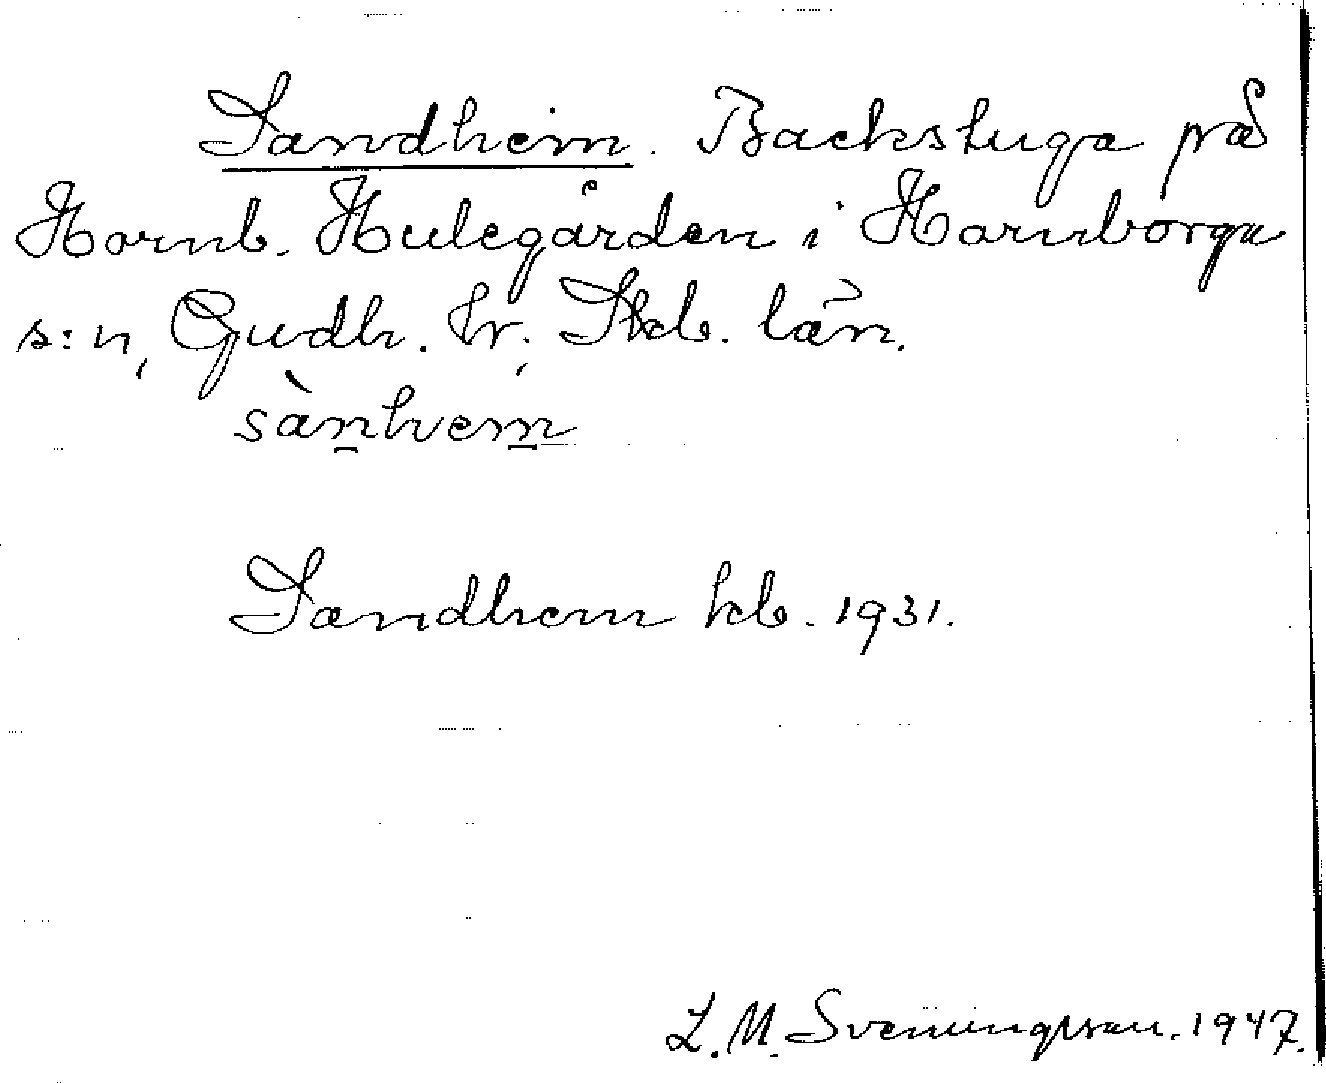 Sandheim. Backstuga på
Hornb. Hulegården i Hornborga
s:n, Gudh. hr, Skb. län.
sànhem
Sandhem kb. 1931.
L. M. Svenungsson. 1947.